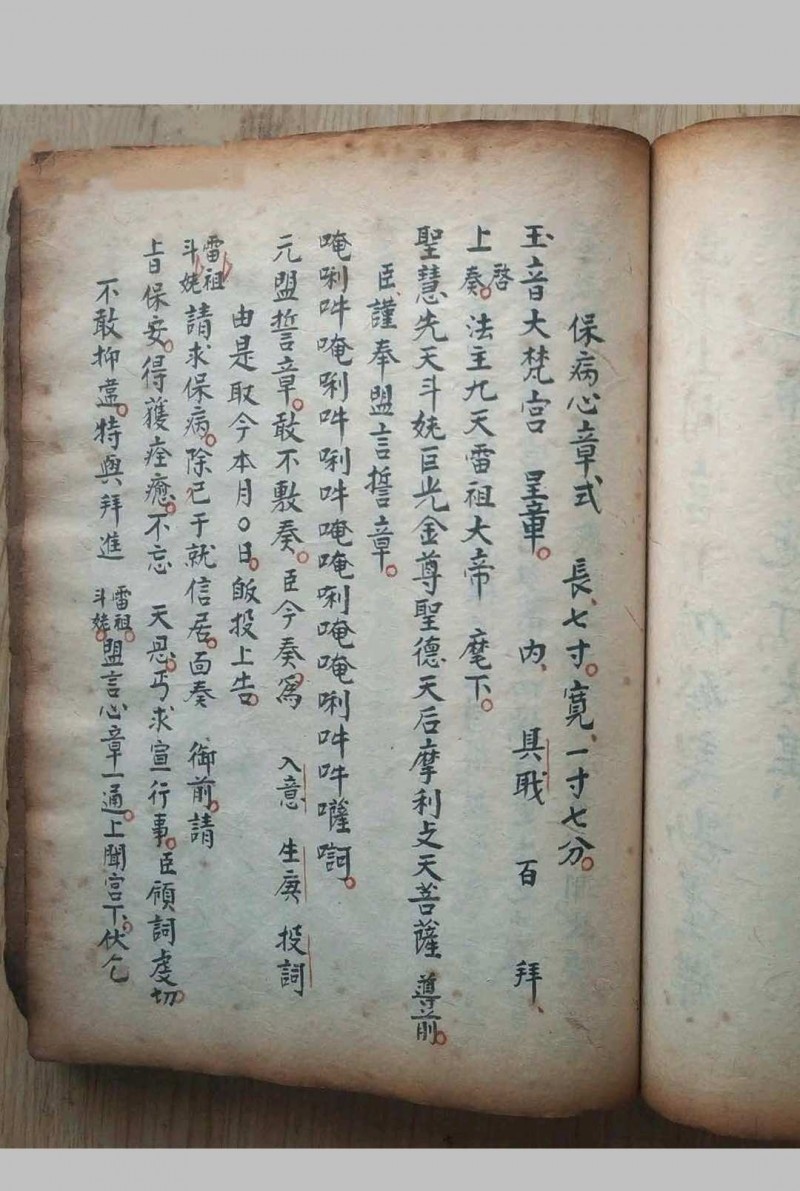 保病心章式　長七寸。寬一寸七分。
玉音大梵宮　呈章。　內　具職　百　拜
上啓奏。法主九天雷祖大帝　麾下。
聖慧先天斗姥巨光金尊聖德天后摩利攴天菩薩　尊前。
臣謹奉盟言誓章。
唵唎吽唵唎吽唎吽唵唵唎唵唵唎吽吽囄㗿。
元盟誓章。敢不敷奏。臣今奏爲　入意　生庚　投詞
由是取今本月〇日。皈投上告。
雷祖斗姥請求保病。除已于就信居。面奏　御前。請
旨保安。得獲痊癒。不忘　天恩。丐求宣行事。臣領詞虔切
不敢抑壅。特與拜進　雷祖斗姥。盟言心章一通。上聞宮下。伏乞